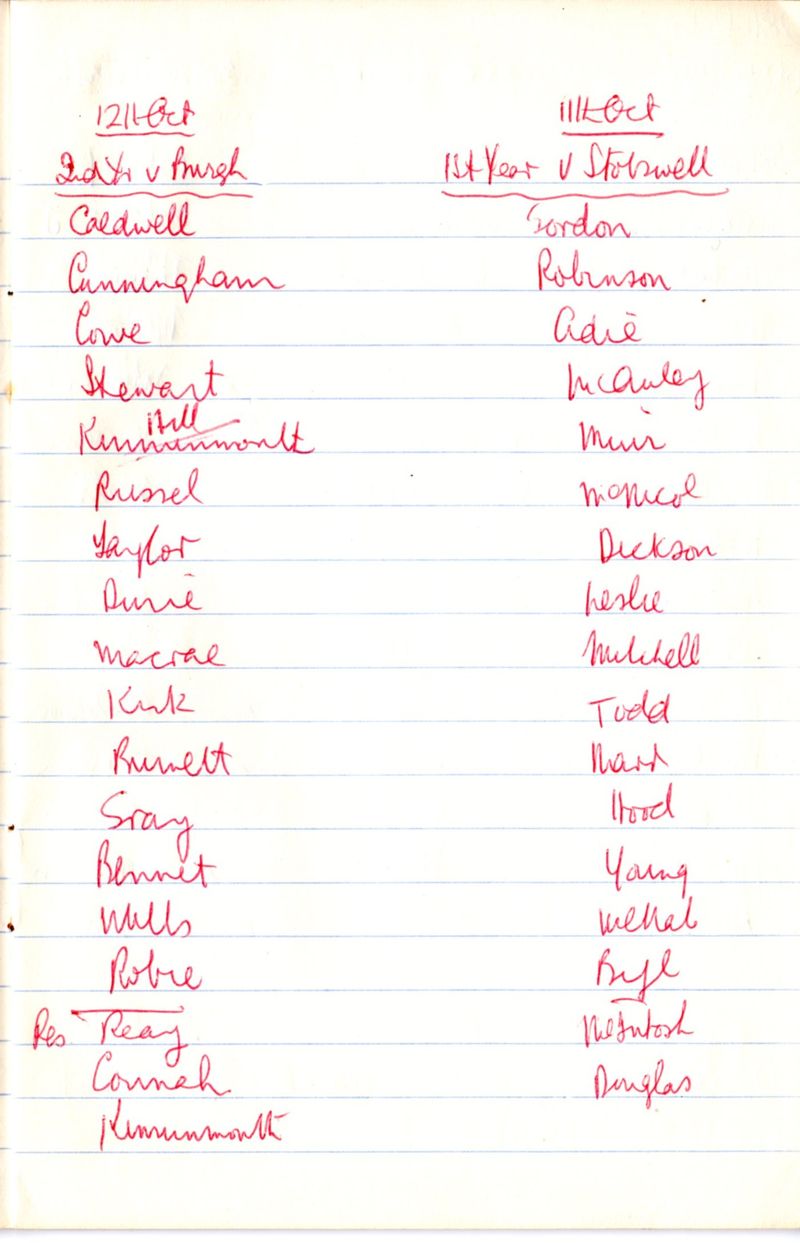 12th Oct
2nd Yr v Burgh
Caldwell
Cunningham
Cowe
Stewart
Hill
Kinninmonth
Russel
Taylor
Durie
Macrae
Kirk
Burnett
Gray
Bennet
Mills
Robie
Res Reay
Connah
Kinninmonth
11th Oct
1st Year v Stobswell
Gordon
Robinson
Adie
McAuley
Muir
McNicol
Dickson
Leslie
Mitchell
Todd
Marr
Hood
Young
McNab
McIntosh
Douglas